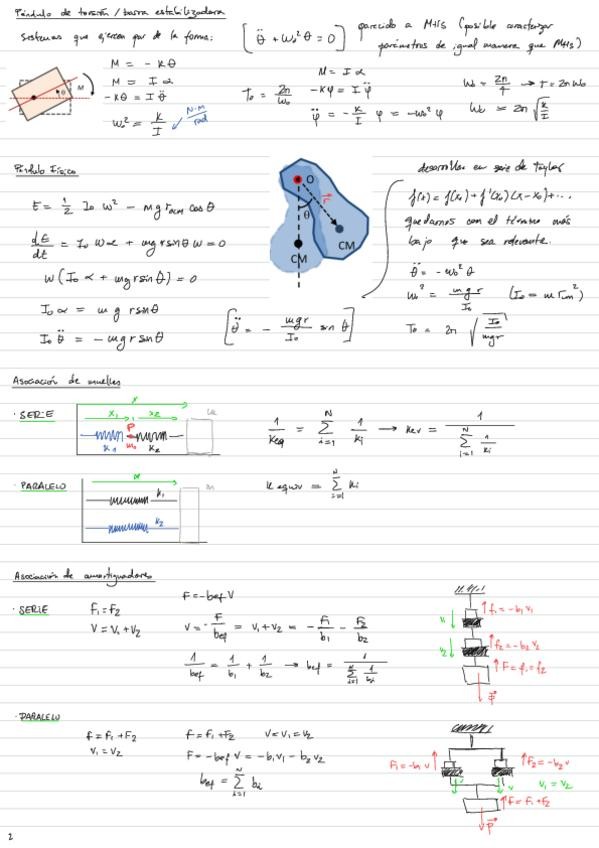 Péndulo de torsión / barra estabilizadora
sistemas que ejercen par de la forma: [θ̈ + ω₀²θ = 0] parecido a MHS (posible caracterizar
parámetros de igual manera que MHS)
M = -kθ
M = Iα
-kθ = Iθ̈
ω₀² = k/I
N·m/rad
M
θ
M = Iα
T₀ = 2π/ω₀
-kφ = Iφ̈
φ̈ = -k/I φ = -ω₀²φ
ω₀ = 2π/T → T = 2πω₀
ω₀ = 2π√(k/I)
Péndulo físico
E = 1/2 I₀ω² - mg r₀cm cos θ
dE/dt = I₀ωα + mgr sinθ ω = 0
ω(I₀α + mgr sinθ) = 0
I₀α = m g r sinθ
I₀θ̈ = -mgr sinθ
[θ̈ = - mgr/I₀ sin θ]
O
r
θ
CM
CM
desarrollar en serie de Taylor
f(x) = f(x₀) + f'(x₀)(x-x₀) + ...
quedarnos con el término más
bajo que sea relevante.
θ̈ = -ω₀²θ
ω₀² = mgr/I₀
T₀ = 2π√(I₀/mgr)
Asociación de muelles
· SERIE
x
x₁ x₂
P
k₁ k₂
1/keq = Σ_{i=1}^{N} 1/ki → keq = 1/Σ_{i=1} 1/ki
· PARALELO
x
k₁
k₂
m
k equiv = Σ_{i=1}^{N} ki
Asociación de amortiguadores
· SERIE
F₁ = F₂
V = V₁ + V₂
F = -bef V
V = -F/bef = V₁ + V₂ = -F₁/b₁ - F₂/b₂
1/bef = 1/b₁ + 1/b₂ → bef = 1/Σ_{i=1} 1/bi
f₁ = -b₁v₁
f₂ = -b₂v₂
F = f₁ = f₂
v₁
v₂
P
· PARALELO
f = f₁ + F₂
V₁ = V₂
f = f₁ + F₂ V = V₁ = V₂
F = -bef V = -b₁v₁ - b₂v₂
bef = Σ_{i=1}^{N} bi
F₁ = -b₁v
f₂ = -b₂v
v v
v₁ = v₂
f = f₁ + f₂
P
2